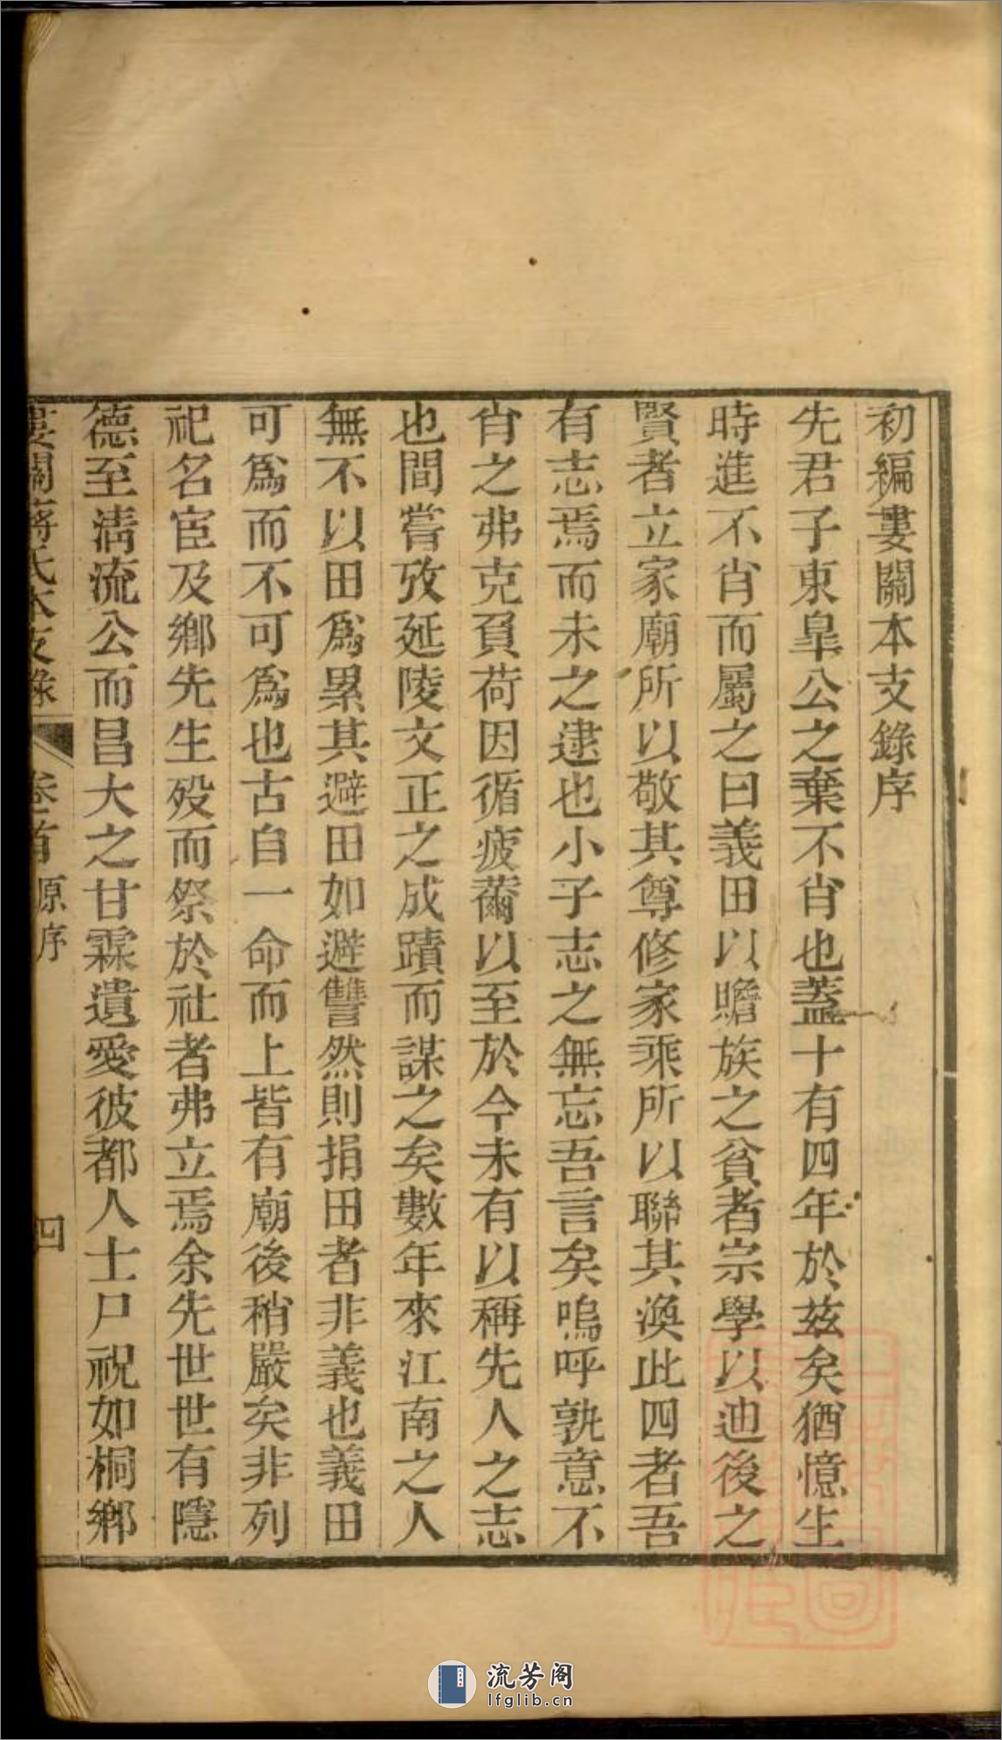 初編婁關本支錄序
先君子東臯公之棄不肖也蓋十有四年於茲矣猶憶生
時進不肖而屬之曰義田以贍族之貧者宗學以迪後之
賢者立家廟所以敬其尊修家乘所以聯其渙此四者吾
有志焉而未之逮也小子志之無忘吾言矣嗚呼孰意不
肖之弗克負荷因循疲薾以至於今未有以稱先人之志
也間嘗攷延陵文正之成蹟而謀之矣數年來江南之人
無不以田爲累其避田如避讐然則捐田者非義也義田
可爲而不可爲也古自一命而上皆有廟後稍嚴矣非列
祀名宦及鄉先生歿而祭於社者弗立焉余先世世有隱
德至淸流公而昌大之甘霖遺愛彼都人士尸祝如桐鄉
婁關蔣氏本支錄 卷首 原序 四
流芳阁
lfglib.cn